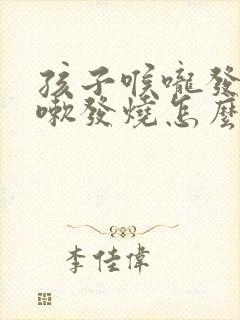 孩子喉嚨發
嗽發燒怎麼
李佳偉